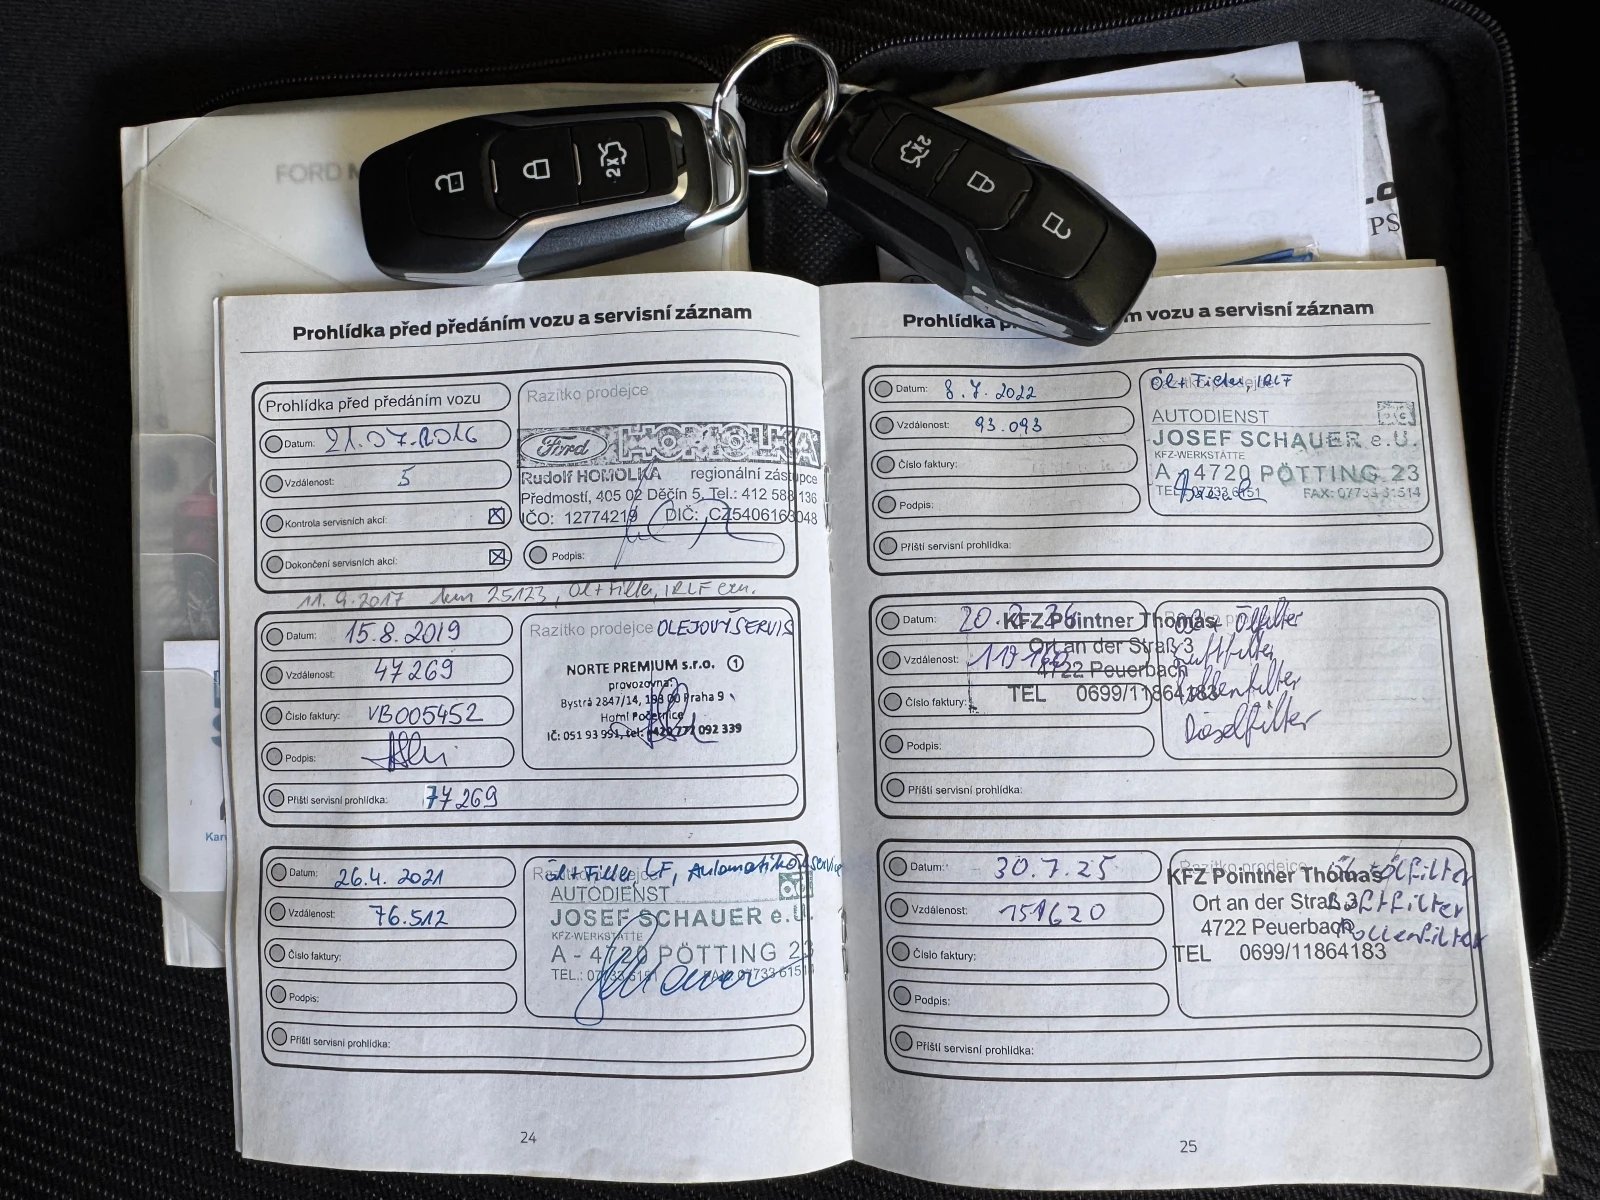 FORD
2x
2x
PS
Prohlídka před předáním vozu a servisní záznam
Prohlídka před předáním vozu
Datum: 21.07.2016
Vzdálenost: 5
Kontrola servisních akcí:
Dokončení servisních akcí:
Razítko prodejce
Ford HOMOLKA
Rudolf HOMOLKA regionální zástupce
Předmostí, 405 02 Děčín 5, Tel.: 412 588 136
IČO: 12774219 DIČ: CZ5406163048
Podpis:
11.9.2017 km 25123, Öl+Filter, IRLF ern.
Datum: 15.8.2019
Vzdálenost: 47269
Číslo faktury: VB005452
Podpis:
Příští servisní prohlídka: 77269
Razítko prodejce OLEJOVÝ SERVIS
NORTE PREMIUM s.r.o. 1
provozovna:
Bystrá 2847/14, 193 00 Praha 9
Horní Počernice
IČ: 051 93 991, tel: +420 777 092 339
Datum: 26.4. 2021
Vzdálenost: 76.512
Číslo faktury:
Podpis:
Příští servisní prohlídka:
Razítko prodejce
Öl+Filter, LF, Automatiköl service
AUTODIENST
JOSEF SCHAUER e.U.
KFZ-WERKSTÄTTE
A - 4720 PÖTTING 23
TEL.: 07733 6151 FAX: 07733 61514
24
Prohlídka vozu a servisní záznam
Datum: 8.7.2022
Vzdálenost: 93.093
Číslo faktury:
Podpis:
Příští servisní prohlídka:
Öl+Filter, IRLF
AUTODIENST
JOSEF SCHAUER e.U.
KFZ-WERKSTÄTTE
A - 4720 PÖTTING 23
TEL.: 07733 6151 FAX: 07733 61514
Datum:
Vzdálenost:
Číslo faktury:
Podpis:
Příští servisní prohlídka:
KFZ Pointner Thomas
Ort an der Straß 3
4722 Peuerbach
TEL 0699/11864183
Ölfilter
Luftfilter
Pollenfilter
Dieselfilter
Datum: 30.7.25
Vzdálenost: 151620
Číslo faktury:
Podpis:
Příští servisní prohlídka:
Razítko prodejce
KFZ Pointner Thomas
Ort an der Straß 3
4722 Peuerbach
TEL 0699/11864183
Öl+Ölfilter
Luftfilter
Pollenfilter
25